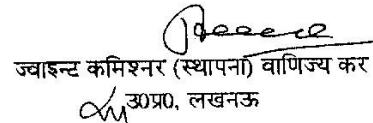 ज्वाइन्ट कमिश्नर (स्थापना) वाणिज्य कर
उ0प्र0, लखनऊ